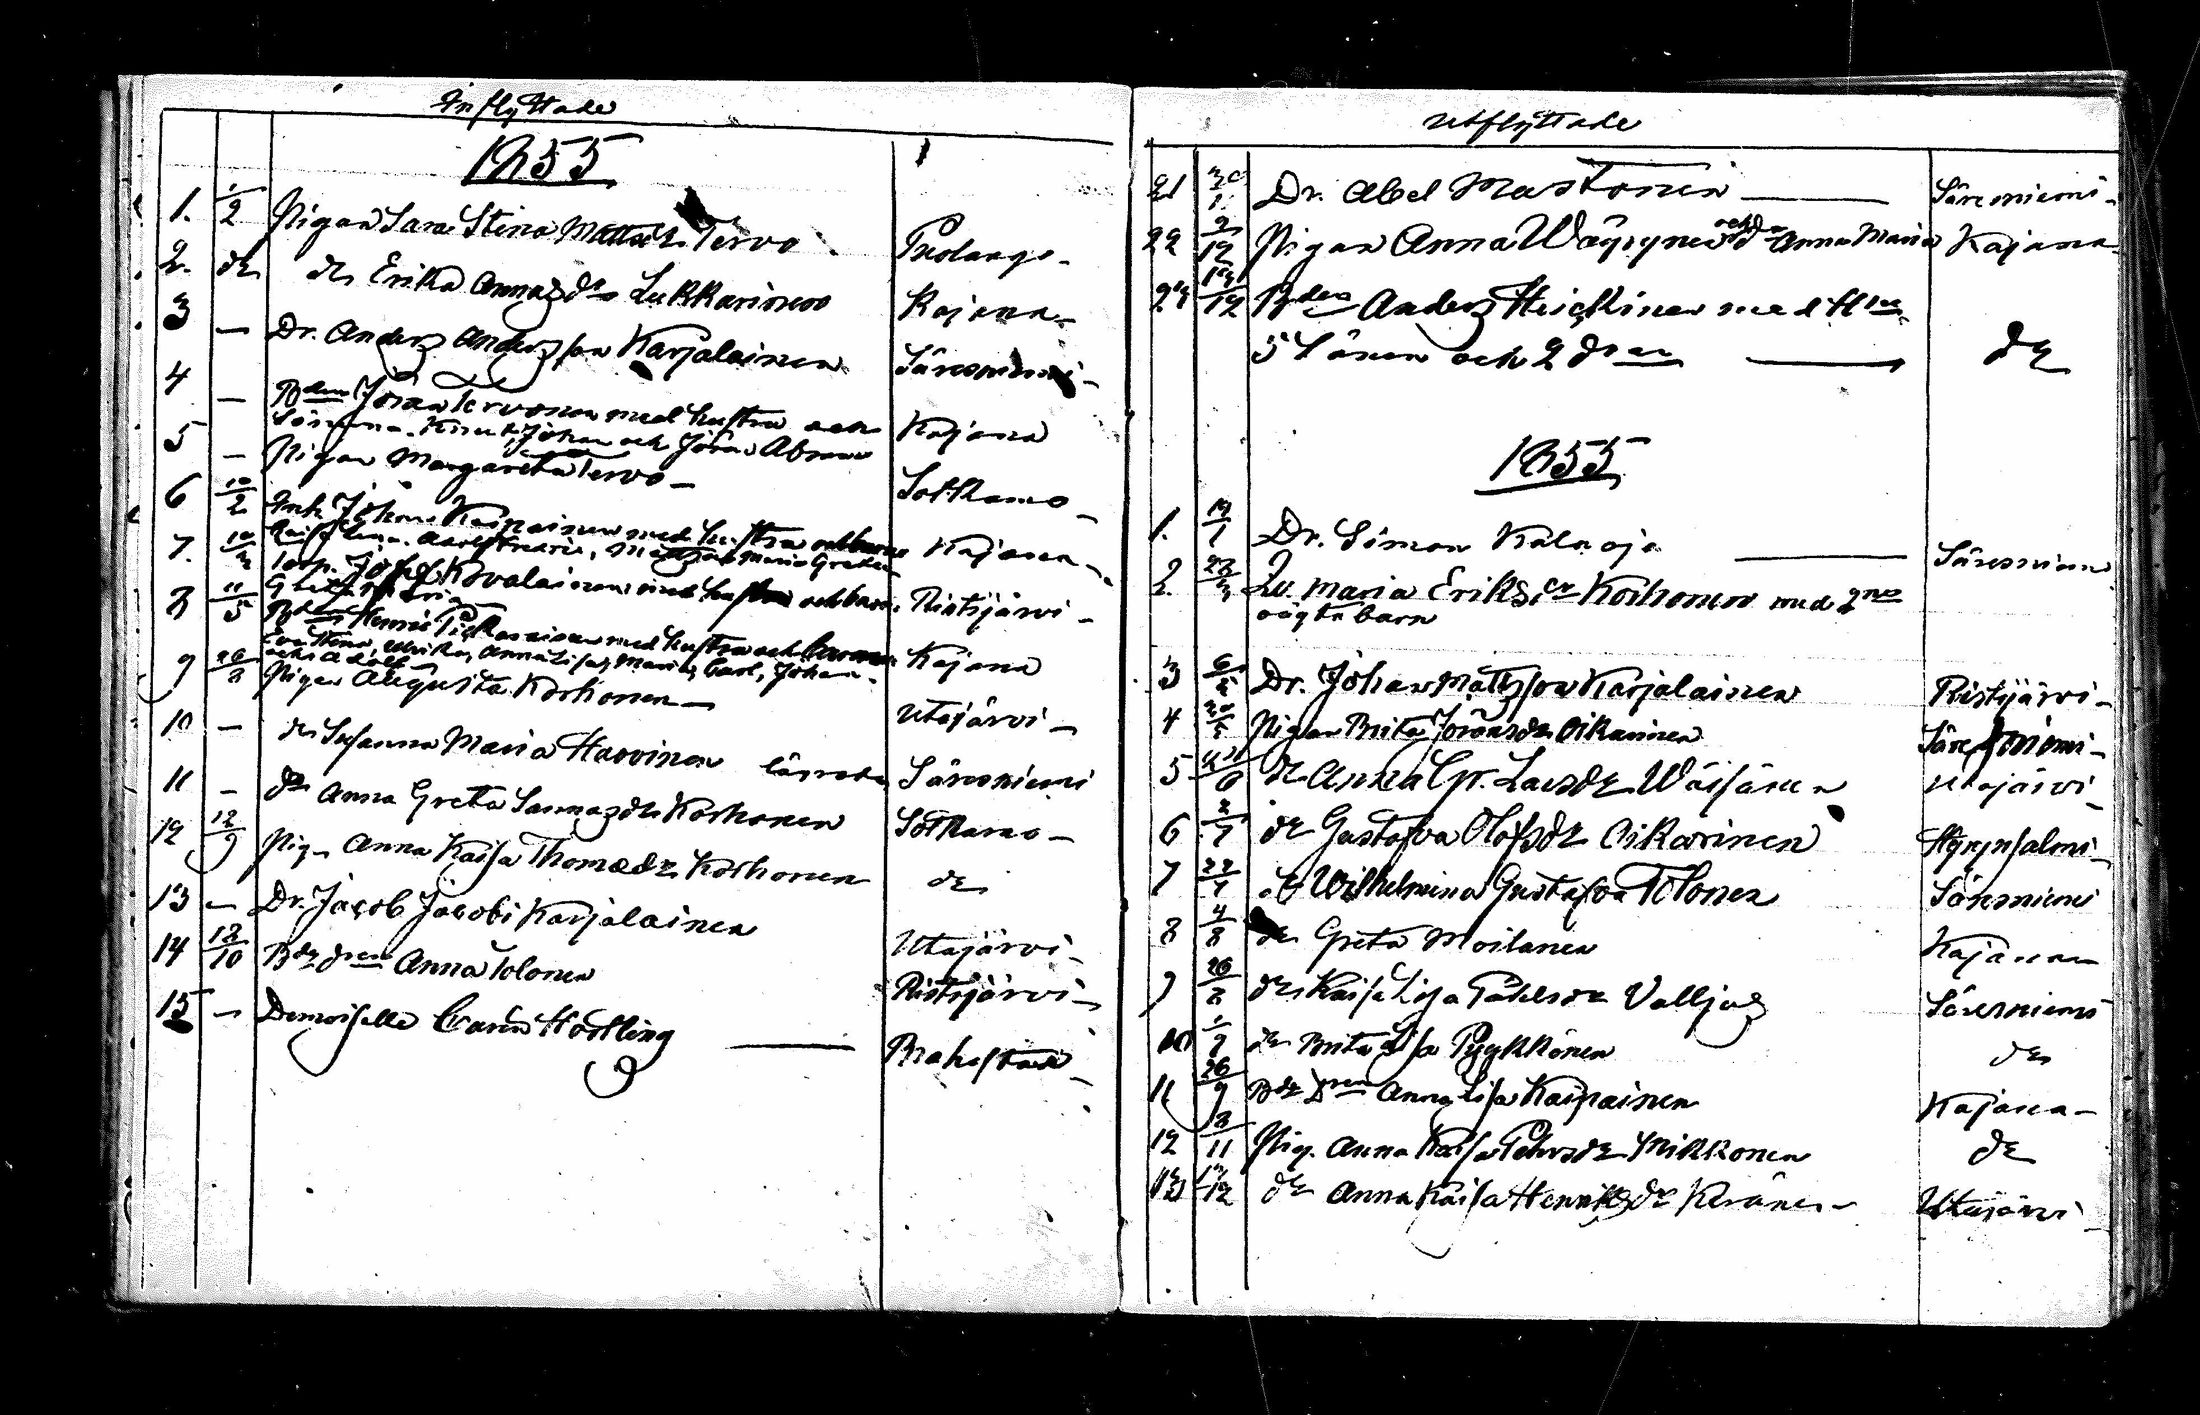 Inflyttade
1855
1. 1/2 Pigan Sara Stina Mattsdr Tervo Puolango
2. do do Erika Annasdr Lukkarinen Kajana
3 — Dr. Anders Andersson Karjalainen Säresniemi
4 — Bden Jöran Tervonen med hustru och Kajana
Sönerna Knut, Johan och Jöran Abram
5 — Pigan Margareta Tervo — Sotkamo
6 10/2 Inh Johan Kaipainen med hustru och barn Kajana
Maria Greta
7. Torp. Josef Kovalainen med hustru och barn Ristijärvi
Greta
8 11/5 Bden Henric Pikkarainen med hustru och barnen Kajana
Eva Stina, Ulrika, Anna Lisa, Maria, Carl, Johan
och Adolf
9 26/8 Pigan Augusta Korhonen — Utajärvi
10 — do Susanna Maria Harvinen Säresniemi
11 — do Anna Greta Sannasdr Korhonen Sotkamo
12 12/9 Pign Anna Kaisa Thomædr Korhonen do
13 — Dr. Jacob Jacobi Karjalainen Utajärvi
14 12/10 Bdedren Anna Tolonen Ristijärvi
15 — Demoiselle Carin Hörling Brahestad
Utflyttade
21 Dr. Abel Mastonen Säresniemi
22 2/12 Pigan Anna Wäyrynen och dr Anna Maria Kajana
23 Bden Anders Heickinen med Hru
5 Söner och 2 drar do
1855
1. 19/1 Dr. Simon Kalaoja Säresniemi
2. Lö. Maria Eriksdr Korhonen med 2ne
oägta barn
3 Dr. Johan Mattsson Karjalainen Ristijärvi
4 Pigan Brita Jöransdr Oikarinen Säresniemi
5 do Anna Cr. Larsdr Wäisänen Utajärvi
6 2/7 do Gustafva Olofsdr Oikarinen Hyrynsalmi
7 22/7 do Wilhelmina Gustafva Tolonen Säresniemi
8 4/8 do Greta Moilanen Kajana
9 26/8 do Kaisa Lisa Påhlsdr Valljus Säresniemi
10 1/9 do Brita Lisa Pyykkönen do
11 26/9 Bde Dren Anna Lisa Kaipainen Kajana
12 3/11 Pig. Anna Kaisa Pehrsdr Mikkonen do
13 do Anna Kaisa Henriksdr Keränen Utajärvi